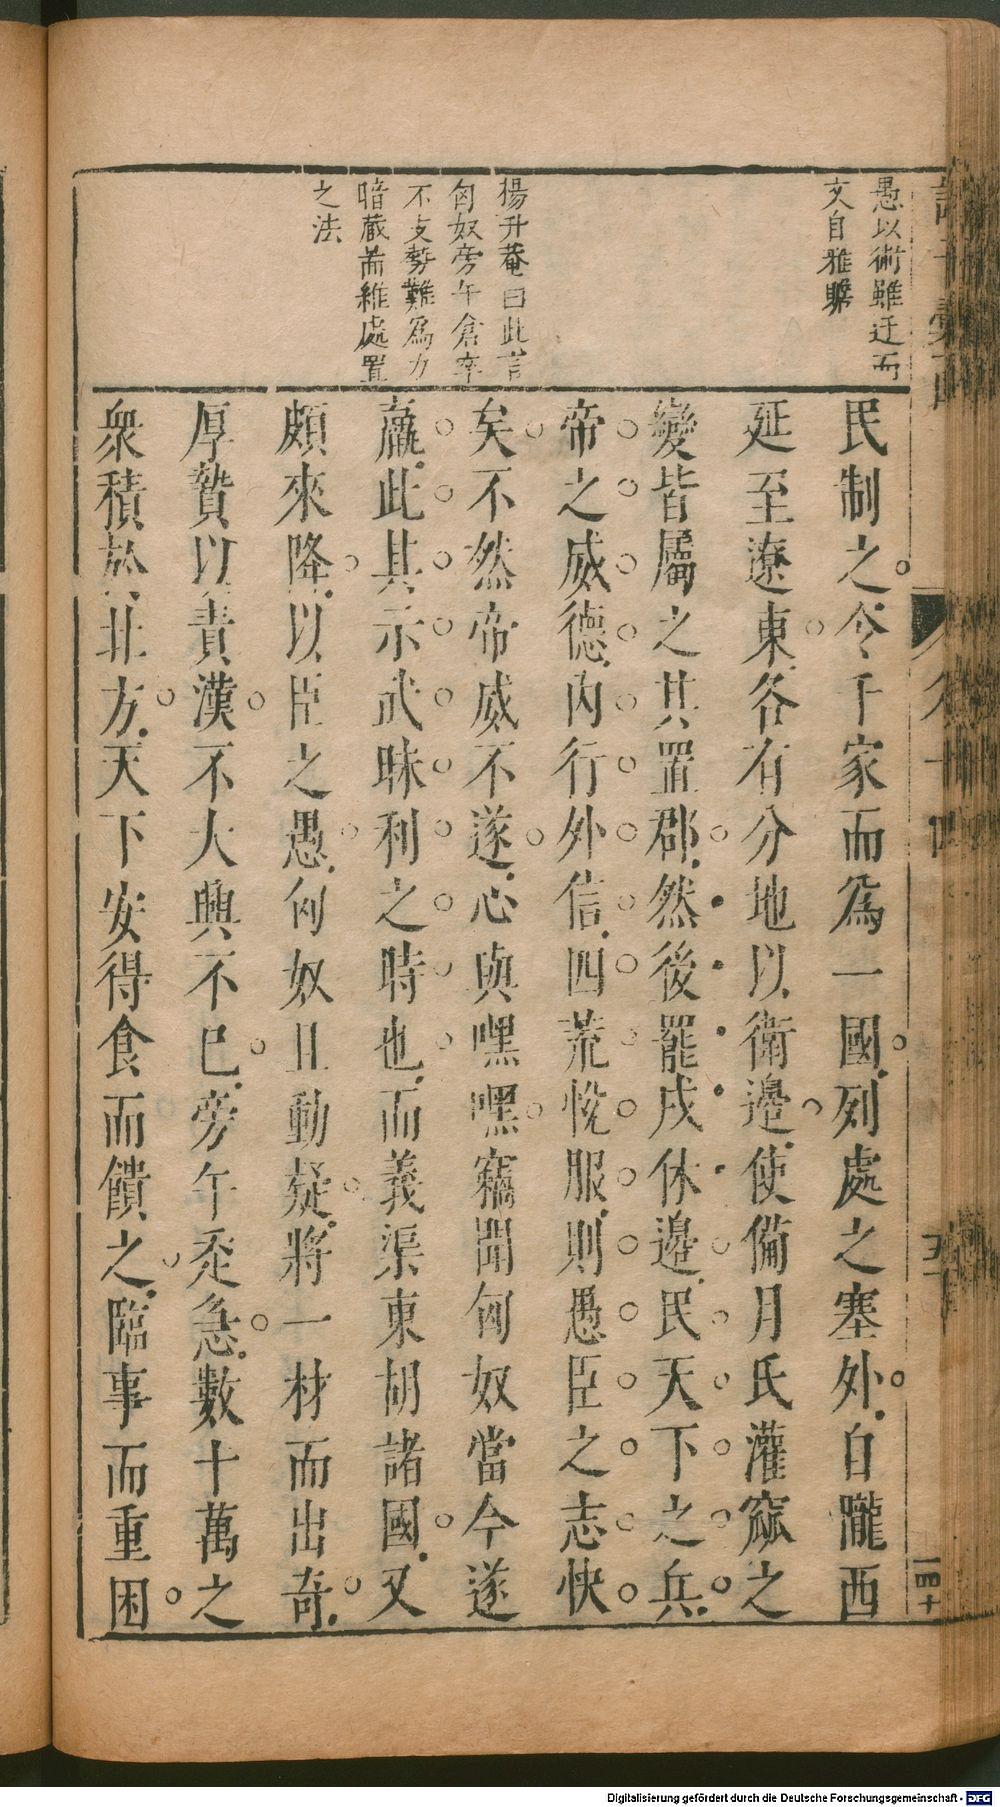 愚以術雖迂而
文自雅贍
揚升菴曰此言
匈奴旁午倉卒
不支勢難爲力
暗藏前維處置
之法
民制之令千家而爲一國列處之塞外自隴西
延至遼東各有分地以衛邊使備月氏灌窳之
變皆屬之其置郡然後罷戍休邊民天下之兵
帝之威德內行外信四荒悅服則愚臣之志快
矣不然帝威不遂心與嘿嘿竊聞匈奴當今遂
羸此其示武昧利之時也而義渠東胡諸國又
頗來降以臣之愚匈奴且動疑將一材而出奇
厚贄以責漢不大興不已旁午走急數十萬之
衆積於北方天下安得食而饋之臨事而重困
Digitalisierung gefördert durch die Deutsche Forschungsgemeinschaft - DFG